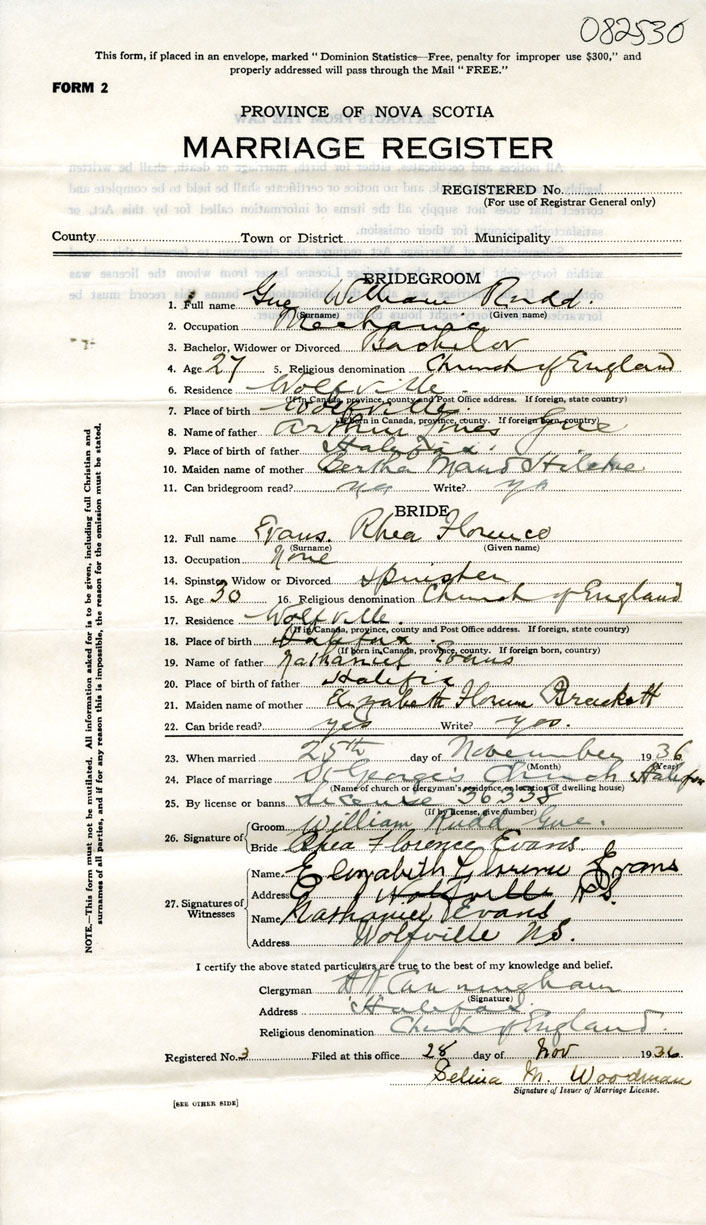 082530
This form, if placed in an envelope, marked "Dominion Statistics—Free, penalty for improper use $300," and
properly addressed will pass through the Mail "FREE."
FORM 2
PROVINCE OF NOVA SCOTIA
MARRIAGE REGISTER
REGISTERED No.
(For use of Registrar General only)
County Town or District Municipality
BRIDEGROOM
1. Full name Gue William Rudd.
(Surname) (Given name)
2. Occupation Mechanic
3. Bachelor, Widower or Divorced Bachelor
4. Age 27 5. Religious denomination Church of England
6. Residence Wolfville.
(If in Canada, province, county and Post Office address. If foreign, state country)
7. Place of birth Wolfville.
(If born in Canada, province, county. If foreign born, country)
8. Name of father Arthur Jones Gue
9. Place of birth of father Halifax.
10. Maiden name of mother Bertha Maud
11. Can bridegroom read? yes Write? yes
BRIDE
12. Full name Evans. Rhea Florence
(Surname) (Given name)
13. Occupation None
14. Spinster, Widow or Divorced Spinster
15. Age 30 16. Religious denomination Church of England
17. Residence Wolfville.
(If in Canada, province, county and Post Office address. If foreign, state country)
18. Place of birth Halifax
(If born in Canada, province, county. If foreign born, country)
19. Name of father Nathaniel Evans
20. Place of birth of father Halifax
21. Maiden name of mother Elizabeth Florence Brackett
22. Can bride read? yes Write? yes.
23. When married 25th day of November 1936
(Month) (Year)
24. Place of marriage St George's Church Halifax
(Name of church or clergyman's residence, or location of dwelling house)
25. By license or banns License 36338
(If by license, give number)
26. Signature of
Groom William Rudd Gue.
Bride Rhea Florence Evans.
27. Signatures of Witnesses
Name Elizabeth Florence Evans
Address Wolfville N.S.
Name Nathaniel Evans
Address Wolfville N.S.
I certify the above stated particulars are true to the best of my knowledge and belief.
Clergyman Cunningham
(Signature)
Address Halifax.
Religious denomination Church of England.
Registered No. 3 Filed at this office 28 day of Nov 1936
Selina M. Woodman
Signature of Issuer of Marriage License.
[SEE OTHER SIDE]
NOTE.—This form must not be mutilated. All information asked for is to be given, including full Christian and
surnames of all parties, and if for any reason this is impossible, the reason for the omission must be stated.